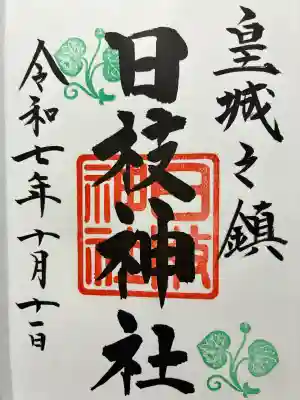 皇城之鎮
日枝神社
令和七年十月十一日
日枝神社